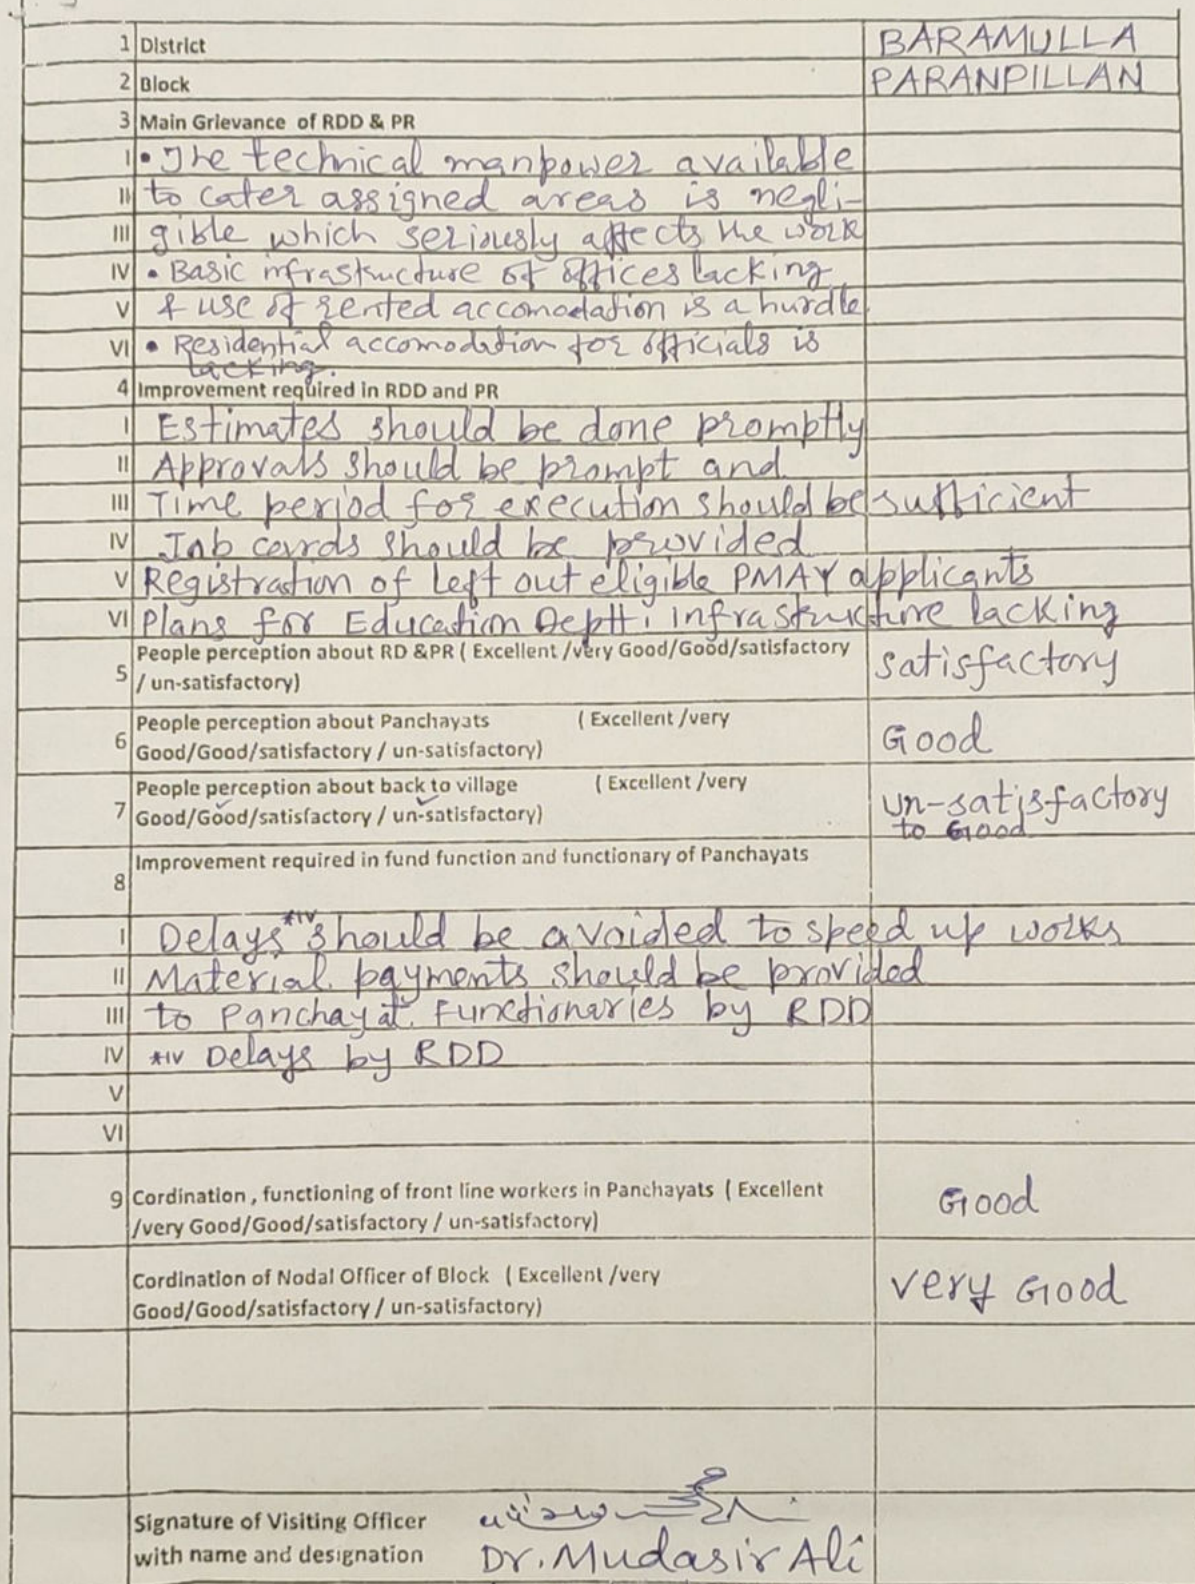 1 District BARAMULLA
2 Block PARANPILLAN
3 Main Grievance of RDD & PR
I • The technical manpower available
II to cater assigned areas is negli-
III gible which seriously affects the work
IV • Basic infrastructure of offices lacking
V & use of rented accomodation is a hurdle
VI • Residential accomodation for officials is
lacking.
4 Improvement required in RDD and PR
I Estimates should be done promptly
II Approvals should be prompt and
III Time period for execution should be sufficient
IV Job cards should be provided
V Registration of Left out eligible PMAY applicants
VI Plans for Education Deptt. infrastructure lacking
5 People perception about RD &PR ( Excellent /very Good/Good/satisfactory
/ un-satisfactory) satisfactory
6 People perception about Panchayats ( Excellent /very
Good/Good/satisfactory / un-satisfactory) Good
7 People perception about back to village ( Excellent /very
Good/Good/satisfactory / un-satisfactory) un-satisfactory
to Good
8 Improvement required in fund function and functionary of Panchayats
I Delays *IV should be avoided to speed up works
II Material payments should be provided
III to Panchayat Functionaries by RDD
IV *IV Delays by RDD
V
VI
9 Cordination , functioning of front line workers in Panchayats ( Excellent
/very Good/Good/satisfactory / un-satisfactory) Good
Cordination of Nodal Officer of Block ( Excellent /very
Good/Good/satisfactory / un-satisfactory) very Good
Signature of Visiting Officer
with name and designation Dr. Mudasir Ali